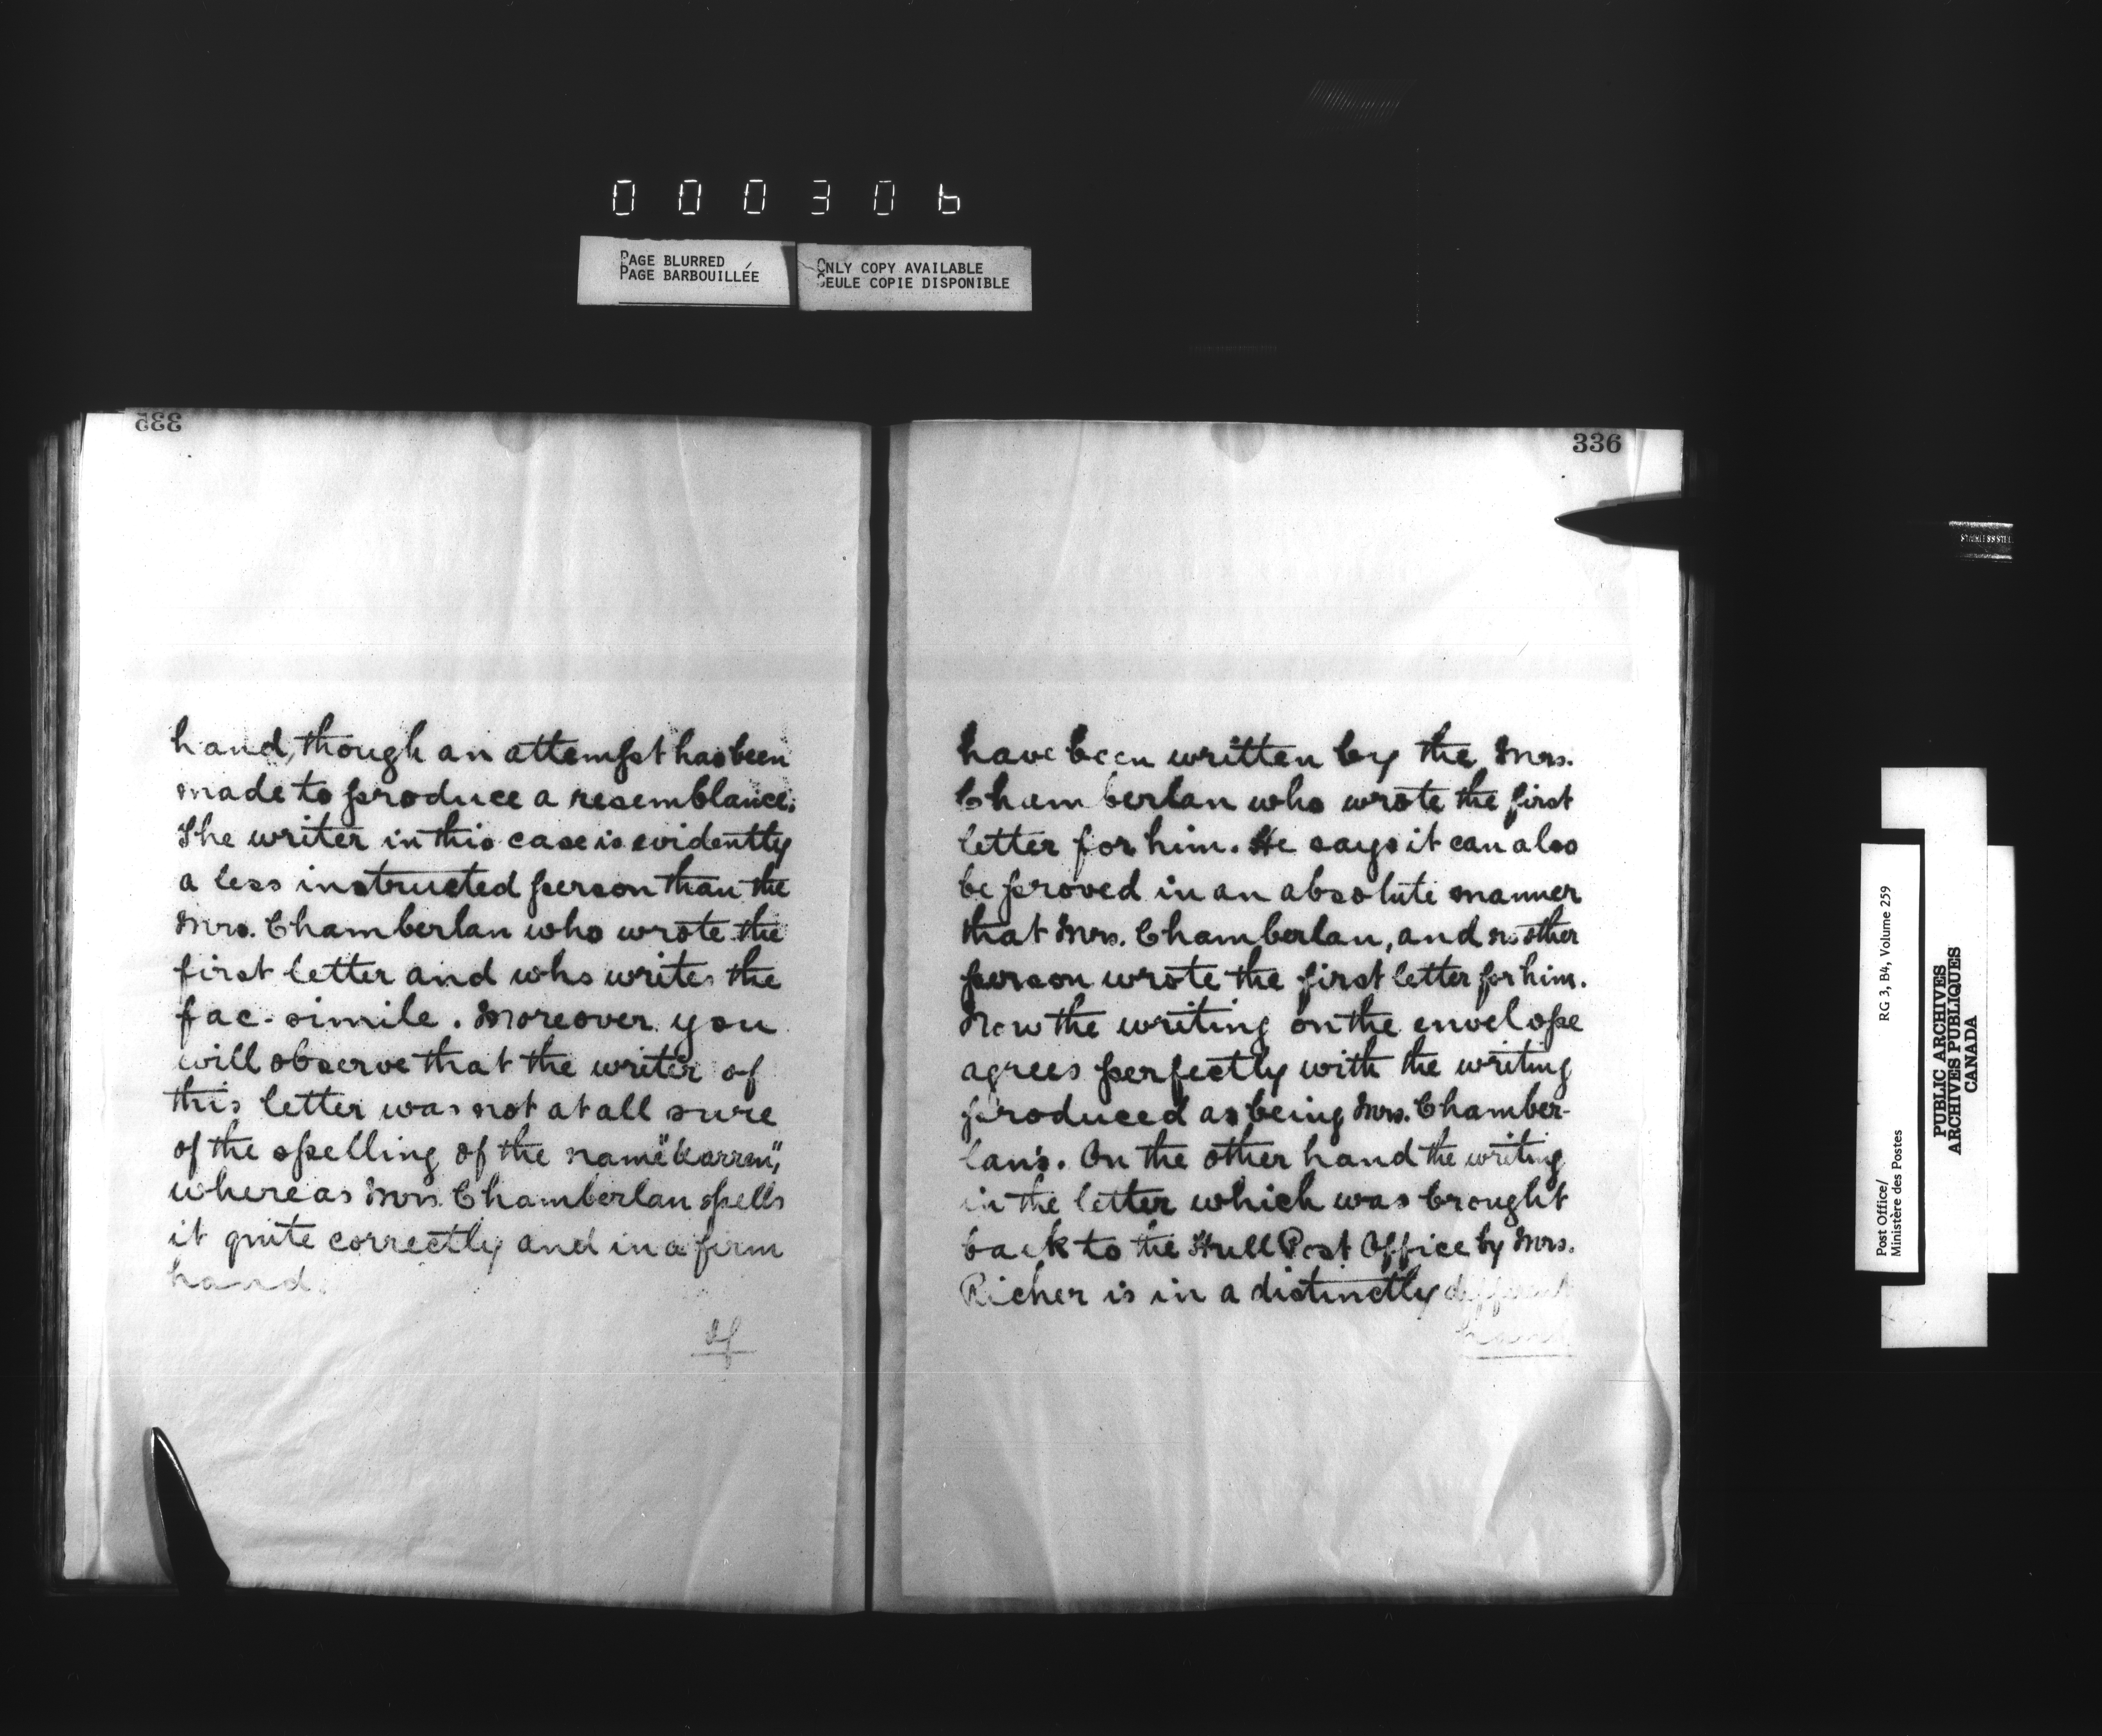 000306
PAGE BLURRED
PAGE BARBOUILLÉE
ONLY COPY AVAILABLE
SEULE COPIE DISPONIBLE
335
hand, though an attempt has been
made to produce a resemblance.
The writer in this case is evidently
a less instructed person than the
Mrs. Chamberlan who wrote the
first letter and who writes the
fac-simile. Moreover you
will observe that the writer of
this letter was not at all sure
of the spelling of the name
whereas Mrs. Chamberlan spells
it quite correctly and in a firm
hand.
If
336
have been written by the Mrs.
Chamberlan who wrote the first
letter for him. He says it can also
be proved in an absolute manner
that Mrs. Chamberlan, and no other
person wrote the first letter for him.
Now the writing on the envelope
agrees perfectly with the writing
produced as being Mrs. Chamber-
lan's. On the other hand the writing
in the letter which was brought
back to the Hull Post Office by Mrs.
Richer is in a distinctly different
hand
Post Office/
Ministère des Postes
RG 3, B4, Volume 259
PUBLIC ARCHIVES
ARCHIVES PUBLIQUES
CANADA